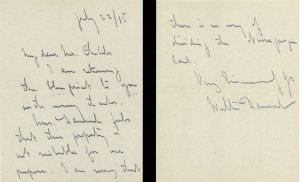 July 22/15
My dear Mr. Childs
I am returning
the blue print to you
with many thanks.
Mrs. Damrosch feels
that this property is
not suitable for our
purpose. I am sorry that
there is no way of
dividing the
land.
Very Sincerely yrs
Walter Damrosch